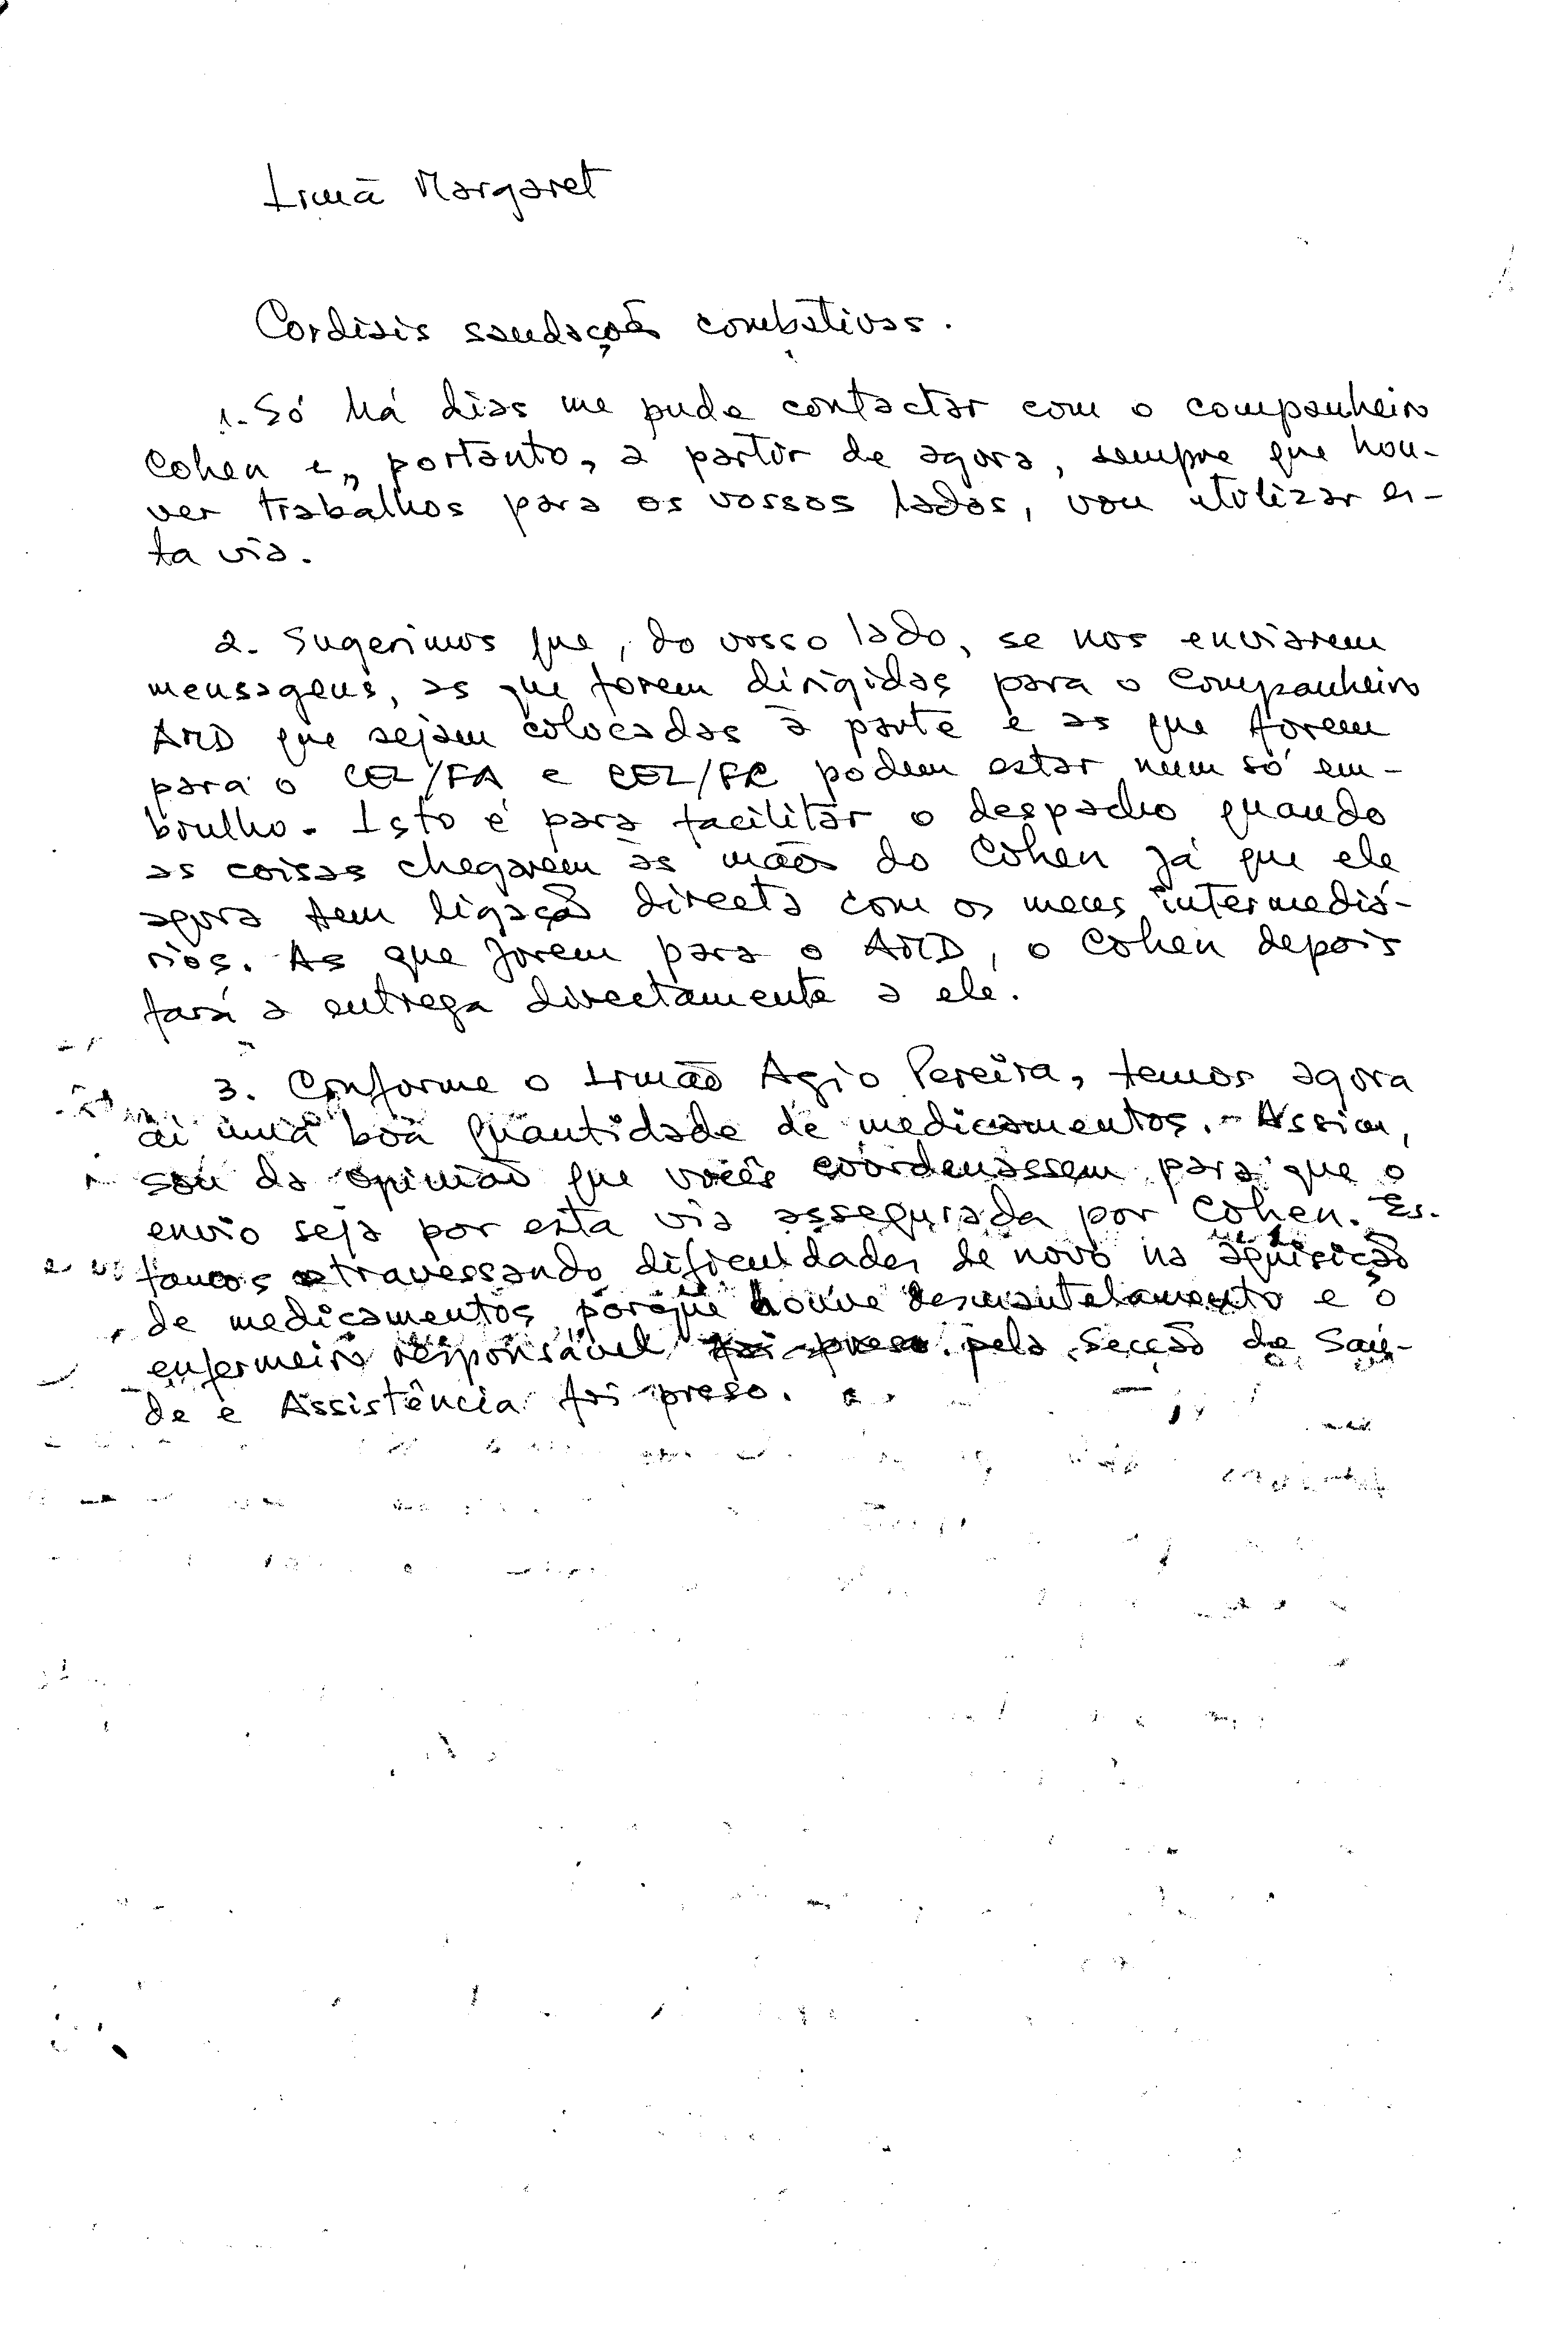 Irmã Margaret
Cordiais saudações combativas.
1. Só há dias me pude contactar com o companheiro
Cohen e, portanto, a partir de agora, sempre que hou-
ver trabalhos para os vossos lados, vou utilizar es-
ta via.
2. Sugerimos que, do vosso lado, se nos enviarem
mensagens, as que forem dirigidas para o Companheiro
AMD que sejam colocadas à parte e as que forem
para o CEL/FA e CEL/FR podem estar num só em-
brulho. Isto é para facilitar o despacho quando
as coisas chegarem às mãos do Cohen já que ele
agora tem ligação directa com os meus intermediá-
rios. As que forem para o AMD, o Cohen depois
fará a entrega directamente a ele.
3. Conforme o Irmão Agio Pereira, temos agora
aí uma boa quantidade de medicamentos. - Assim,
sou da opinião que vocês coordenassem para que o
envio seja por esta via assegurada por Cohen. Es-
tamos atravessando dificuldades de novo na aquisição
de medicamentos porque houve desmantelamento e o
enfermeiro responsável foi preso pela Secção de Saú-
de e Assistência foi preso.